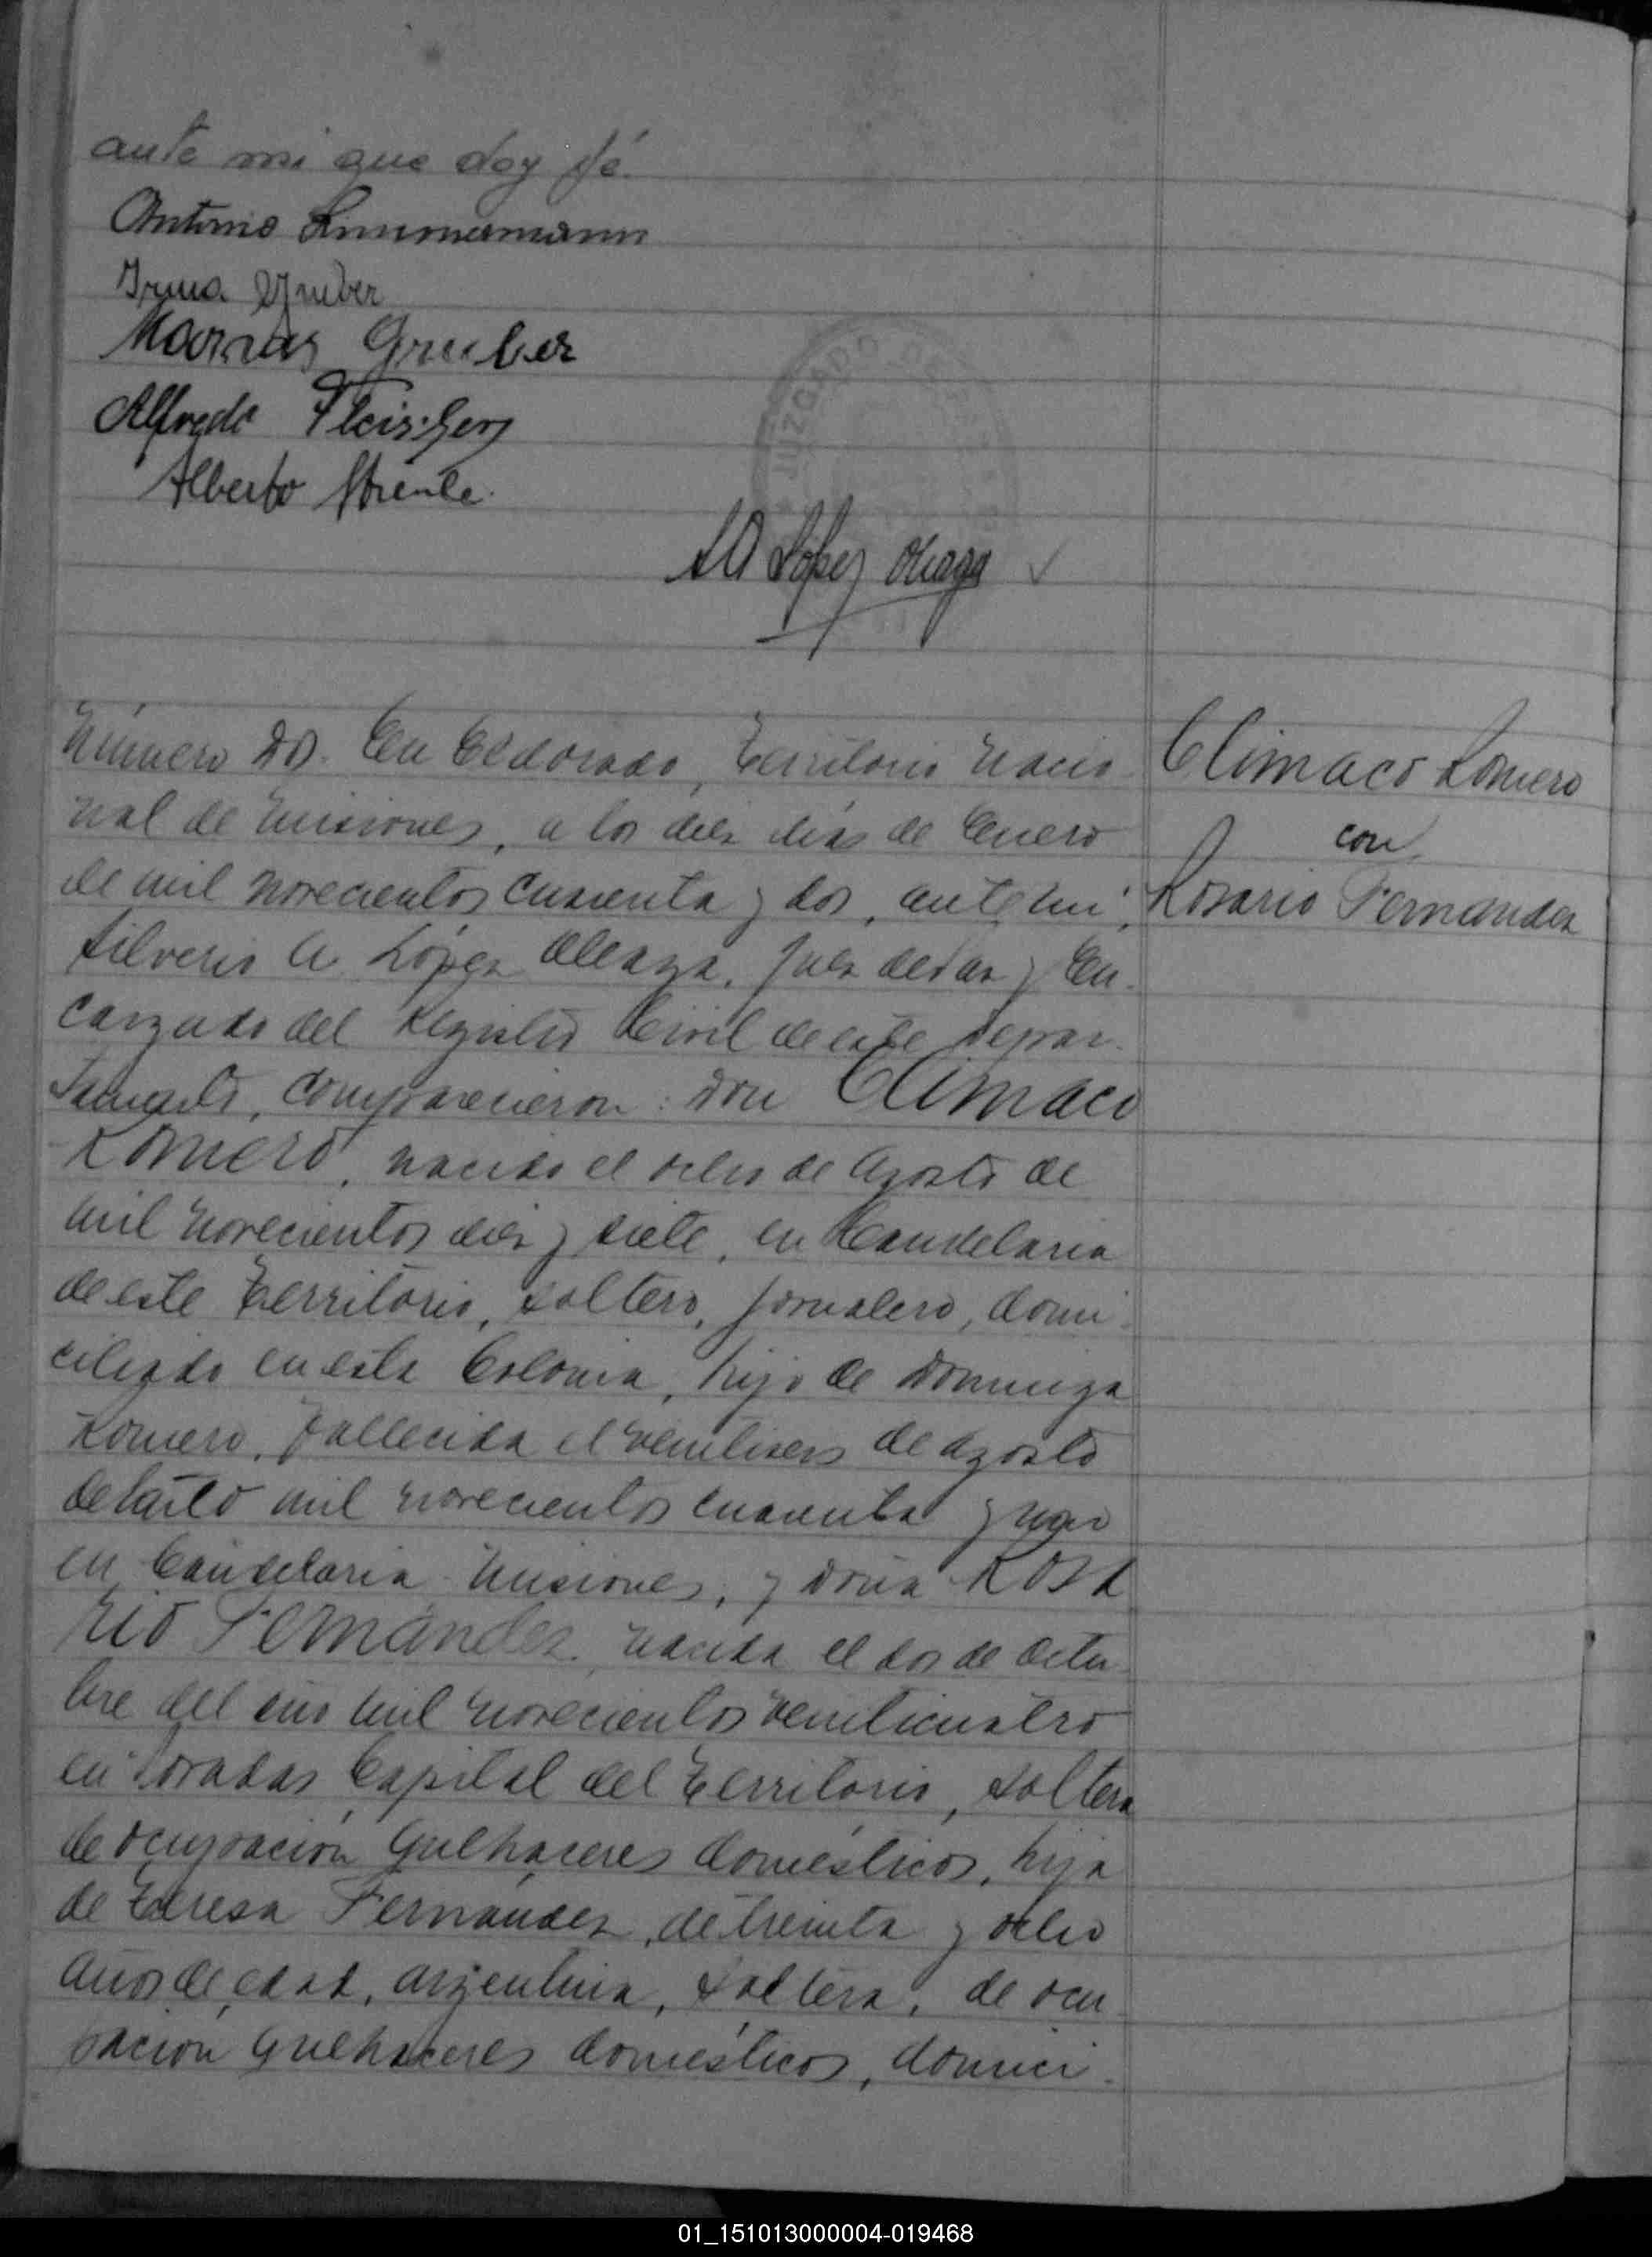 ante mi que doy fé.
Antonio Zimmermann
Irma Gruber
Gruber
Alfredo Fleischer
Alberto
JUZGADO DE
SA López Oleaga
Número Dos. En Eldorado, Territorio Nacio
nal de Misiones, a los diez días de Enero
de mil novecientos cuarenta y dos, ante mi,
Silverio A. López Oleaga, Juez de Paz y En-
cargado del Registro Civil de este Depar-
tamento, comparecieron: Don Climaco
Romero, nacido el ocho de Agosto de
mil novecientos diez y siete, en Candelaria
de este Territorio, soltero, jornalero, domi-
ciliado en esta Colonia, hijo de Dominga
Romero, fallecida el veintiseis de Agosto
de mil novecientos cuarenta y uno
en Candelaria Misiones, y Doña Rosa
rio Fernández, nacida el dos de Octu-
bre del año mil novecientos veinticuatro
en Posadas Capital del Territorio, soltera
de ocupación quehaceres domésticos, hija
de Teresa Fernández, de treinta y ocho
años de edad, argentina, soltera, de ocu-
pación quehaceres domésticos, domici-
Climaco Romero
con
Rosario Fernandez
01_151013000004-019468